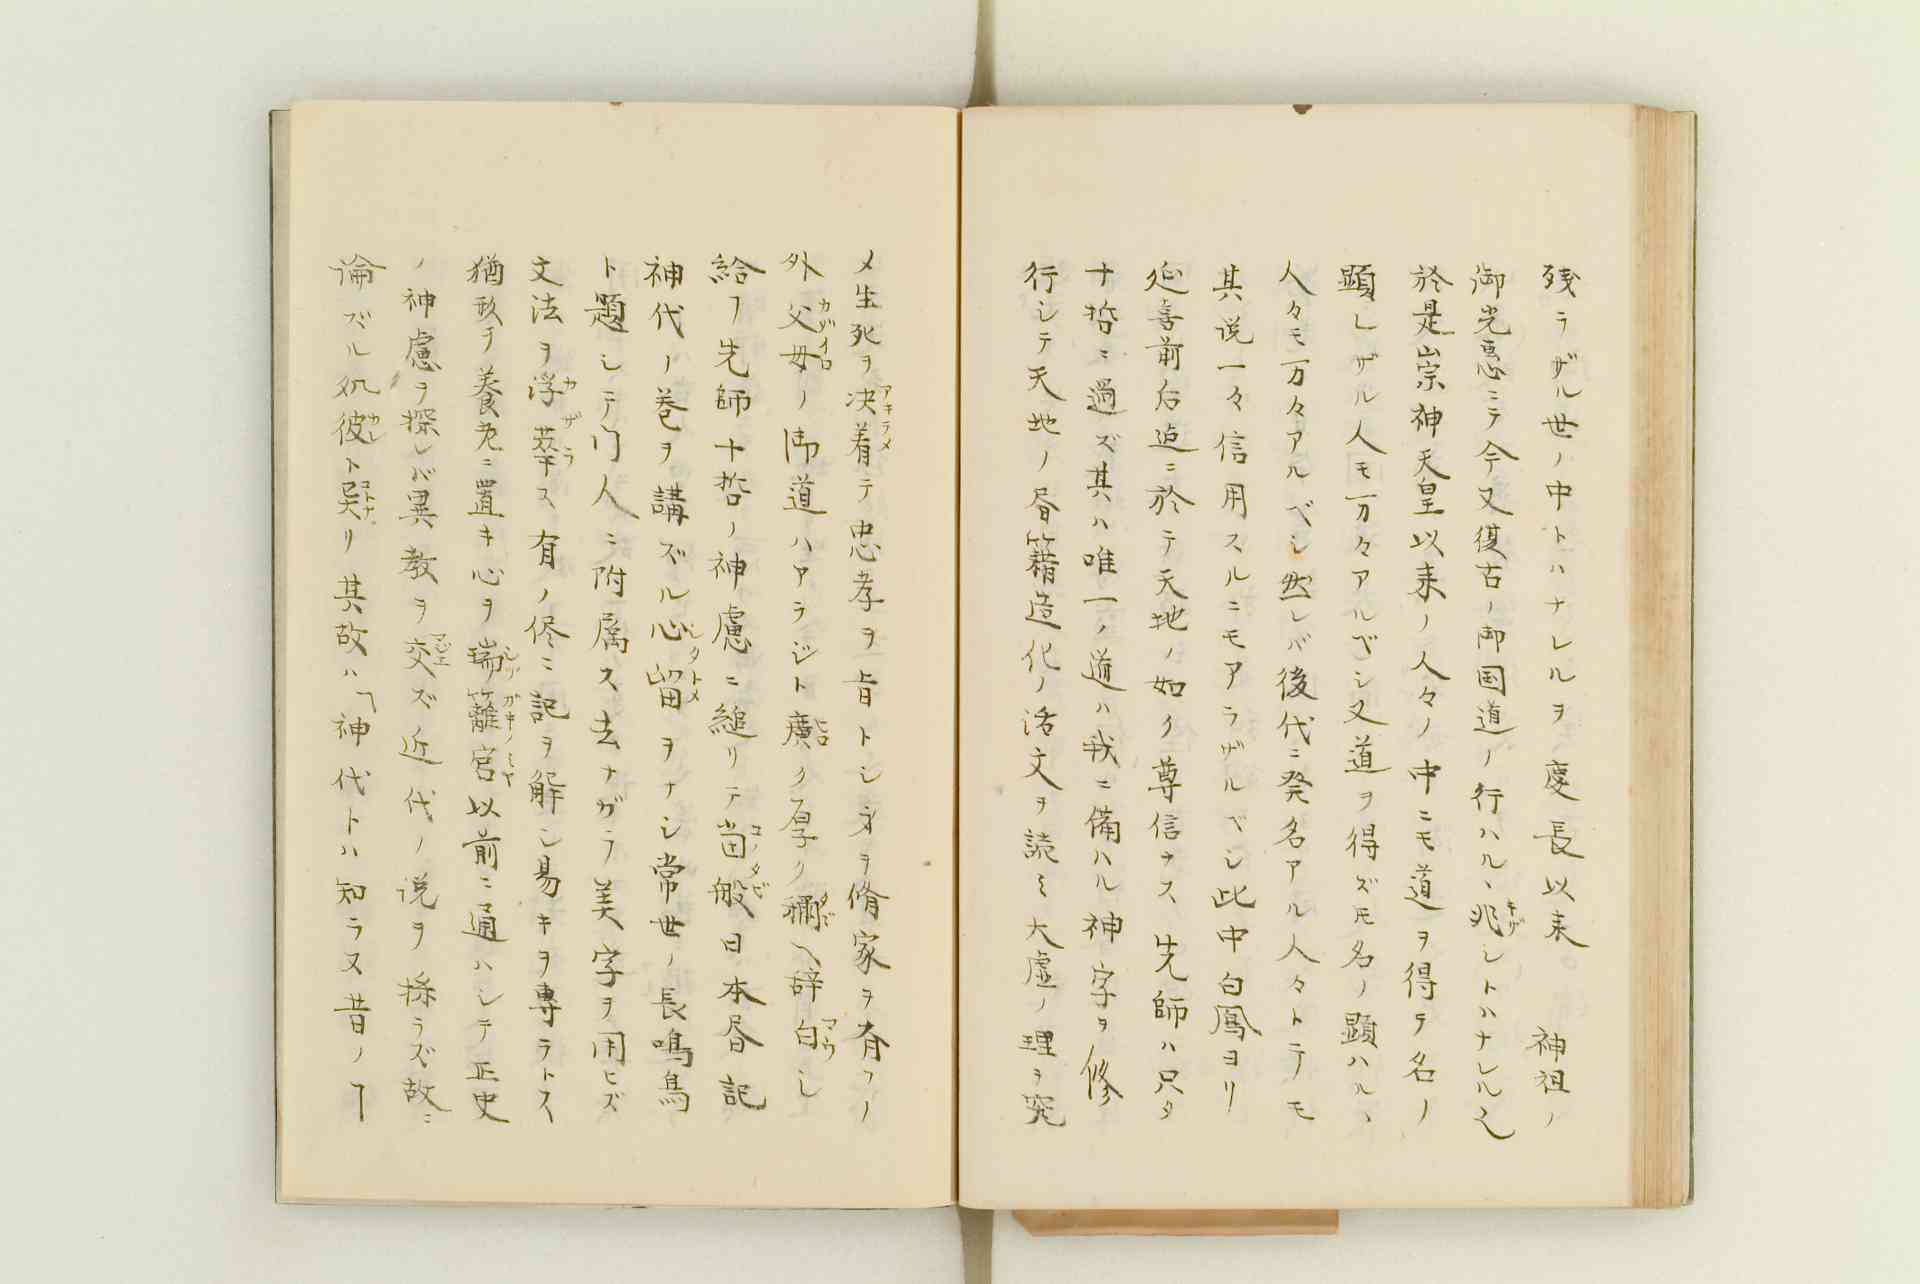 残ラザル世ノ中トハナレルヲ慶長以来 神祖ノ
御光恵ニテ今又復古ノ御国道ノ行ハル丶兆シトハナレル也
於是崇神天皇以来ノ人々ノ中ニモ道ヲ得テ名ノ
顕レザル人モ万々アルベシ又道ヲ得ズモ名ノ顕ハル丶
人々モ万々アルベシ然レバ後代ニ発名アル人々トテモ
其説一々信用スルニモアラザルベシ此中白鳳ヨリ
延喜前后迠ニ於テ天地ノ如ク尊信ナス先師ハ只タ
十哲ニ過ズ其ハ唯一ノ道ハ我ニ備ハル神字ヲ修
行シテ天地ノ昏籍造化ノ活文ヲ読ミ大虚ノ理ヲ究
メ生死ヲ决着テ忠孝ヲ旨トシ身ヲ脩家ヲ斉フノ
外父母ノ御道ハアラジト廣ク厚ク禰ヘ辞白シ
給フ先師十哲ノ神慮ニ縋リテ当般日本昏記
神代ノ巻ヲ講ズル心留ヲナシ常世ノ長鳴鳥
ト題シテ门人ニ附属ス去ナガラ美字ヲ用ヒズ
文法ヲ浮華ス有ノ侭ニ記ヲ解シ易キヲ專ラトス
猶巠チ養老ニ置キ心ヲ瑞籬宮以前ニ通ハシテ正史
ノ神慮ヲ探レバ異教ヲ交ズ近代ノ説ヲ採ラズ故ニ
論ズル処彼ト異リ其故ハ「神代トハ知ラヌ昔ノヿ